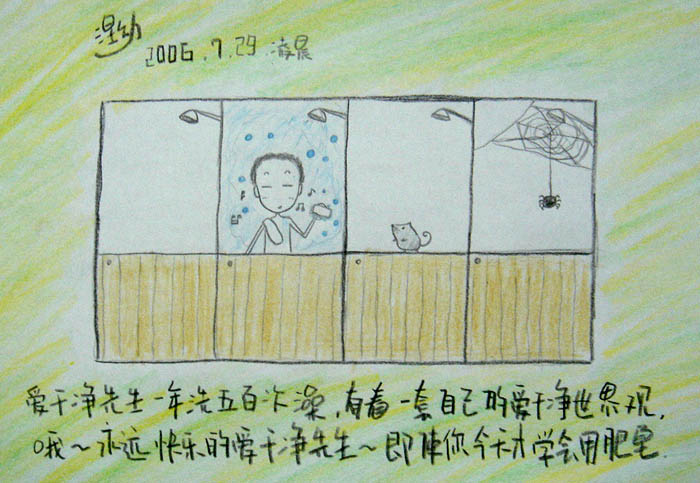 涅幼
2006.7.29.凌晨
爱干净先生一年洗五百次澡，有着一套自己的爱干净世界观，
哦～永远快乐的爱干净先生～即使你今天才学会用肥皂.